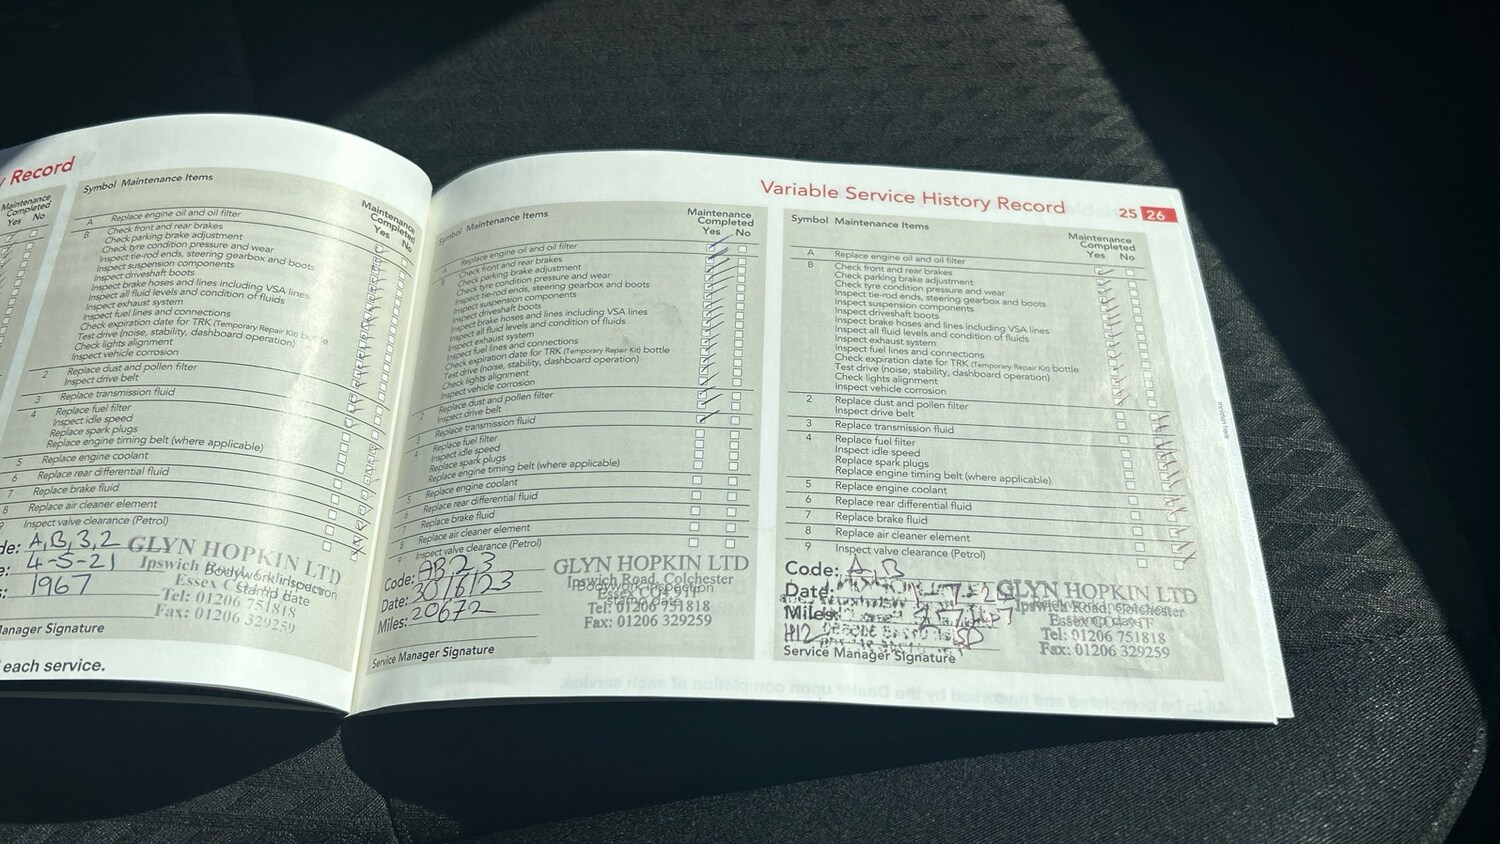 Record
Maintenance
Completed
Yes No
Symbol Maintenance Items
Maintenance
Completed
Yes No
A Replace engine oil and oil filter
B Check front and rear brakes
Check parking brake adjustment
Check tyre condition pressure and wear
Inspect tie-rod ends, steering gearbox and boots
Inspect suspension components
Inspect driveshaft boots
Inspect brake hoses and lines including VSA lines
Inspect all fluid levels and condition of fluids
Inspect exhaust system
Inspect fuel lines and connections
Check expiration date for TRK (Temporary Repair Kit)
Test drive (noise, stability, dashboard operation)
Check lights alignment
Inspect vehicle corrosion
2 Replace dust and pollen filter
Inspect drive belt
3 Replace transmission fluid
4 Replace fuel filter
Inspect idle speed
Replace spark plugs
Replace engine timing belt (where applicable)
5 Replace engine coolant
6 Replace rear differential fluid
7 Replace brake fluid
8 Replace air cleaner element
9 Inspect valve clearance (Petrol)
de: A,B,3,2
4-5-21
1967
GLYN HOPKIN LTD
Ipswich
Bodywork Inspection
Essex
Stamp date
Tel: 01206 751818
Fax: 01206 329259
Manager Signature
each service.
Variable Service History Record 25 26
Symbol Maintenance Items
Maintenance
Completed
Yes No
A Replace engine oil and oil filter
B Check front and rear brakes
Check parking brake adjustment
Check tyre condition pressure and wear
Inspect tie-rod ends, steering gearbox and boots
Inspect suspension components
Inspect driveshaft boots
Inspect brake hoses and lines including VSA lines
Inspect all fluid levels and condition of fluids
Inspect exhaust system
Inspect fuel lines and connections
Check expiration date for TRK (Temporary Repair Kit) bottle
Test drive (noise, stability, dashboard operation)
Check lights alignment
Inspect vehicle corrosion
2 Replace dust and pollen filter
Inspect drive belt
3 Replace transmission fluid
4 Replace fuel filter
Inspect idle speed
Replace spark plugs
Replace engine timing belt (where applicable)
5 Replace engine coolant
6 Replace rear differential fluid
7 Replace brake fluid
8 Replace air cleaner element
9 Inspect valve clearance (Petrol)
Code: AB23
Date: 30/6/23
Miles: 20672
GLYN HOPKIN LTD
Ipswich Road, Colchester
Essex
Tel: 01206 751818
Fax: 01206 329259
Service Manager Signature
Symbol Maintenance Items
Maintenance
Completed
Yes No
A Replace engine oil and oil filter
B Check front and rear brakes
Check parking brake adjustment
Check tyre condition pressure and wear
Inspect tie-rod ends, steering gearbox and boots
Inspect suspension components
Inspect driveshaft boots
Inspect brake hoses and lines including VSA lines
Inspect all fluid levels and condition of fluids
Inspect exhaust system
Inspect fuel lines and connections
Check expiration date for TRK (Temporary Repair Kit) bottle
Test drive (noise, stability, dashboard operation)
Check lights alignment
Inspect vehicle corrosion
2 Replace dust and pollen filter
Inspect drive belt
3 Replace transmission fluid
4 Replace fuel filter
Inspect idle speed
Replace spark plugs
Replace engine timing belt (where applicable)
5 Replace engine coolant
6 Replace rear differential fluid
7 Replace brake fluid
8 Replace air cleaner element
9 Inspect valve clearance (Petrol)
Code: A,B
Date:
Miles:
GLYN HOPKIN LTD
Ipswich Road, Colchester
Essex
Tel: 01206 751818
Fax: 01206 329259
Service Manager Signature